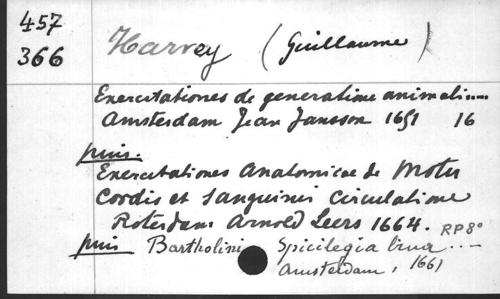 457
366
Harvey (Guillaume)
Exercitationes de generatione animali....
Amsterdam Jean Jansson 1651 16
puis.
Exercitationes Anatomicae de Motu
Cordis et Sanguinis Circulatione
Roterdam Arnold Leers 1664. RP 8°
puis Bartholini Spicilegia bina ...
Amsterdam, 1661